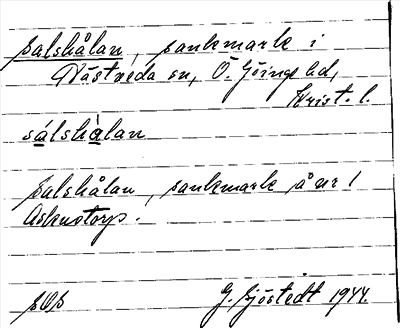 salshålan, sankmark i
Västveda sn, Ö. Göinge hd,
Krist. l.
sálshå̀lan
salshålan, sankmark å nr 1
Askustorp.
G. Sjöstedt 1944.